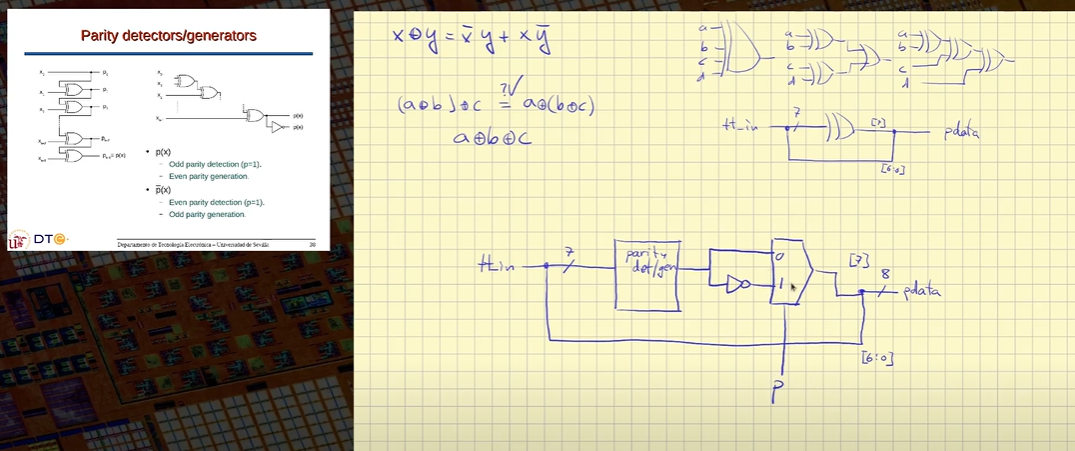 Parity detectors/generators
p(x)
p(x)
• p(x)
– Odd parity detection (p=1).
– Even parity generation.
• p̅(x)
– Even parity detection (p=1).
– Odd parity generation.
DTe
Departamento de Tecnología Electrónica – Universidad de Sevilla
x⊕y = x̅y + xy̅
(a⊕b)⊕c = a⊕(b⊕c)
?✓
a⊕b⊕c
a
b
c
d
a
b
c
d
a
b
c
d
7
[7]
pdata
[6:0]
7
parity
det/gen
0
1
[7]
8
pdata
[6:0]
P